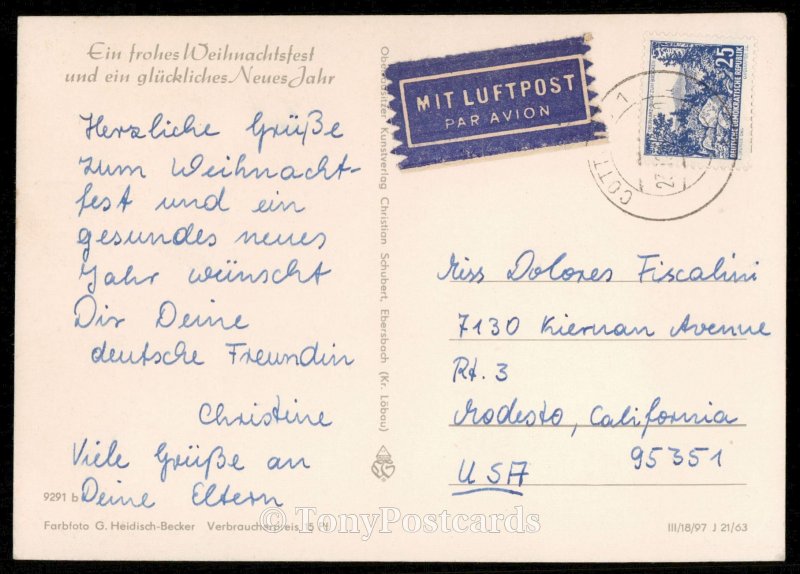 Ein frohes Weihnachtsfest
und ein glückliches Neues Jahr
Herzliche Grüße
zum Weihnacht-
fest und ein
gesundes neues
Jahr wünscht
Dir Deine
deutsche Freundin
Christine
Viele Grüße an
Deine Eltern
9291 b
Farbfoto G. Heidisch-Becker Verbraucherpreis
Oberlausitzer Kunstverlag Christian Schubert, Ebersbach (Kr. Löbau)
MIT LUFTPOST
PAR AVION
25
DEUTSCHE DEMOKRATISCHE REPUBLIK
Miss Dolores Fiscalini
7130 Kiernan Avenue
Rt. 3
Modesto, California
95351
USA
III/18/97 J 21/63
© TonyPostcards